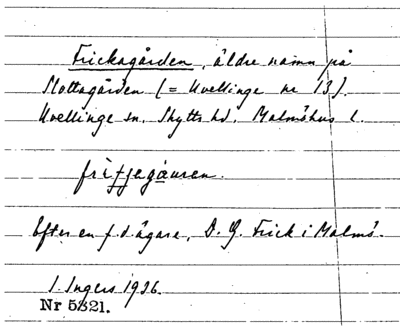 Frickagården, äldre namn på
Slottagården (= Uvellinge nr 13).
Uvellinge sn. Skytts hd. Malmöhus l.
Efter en f.d ägare, D. G. Frick i Malmö.
I. Ingers 1926.
Nr 5821.